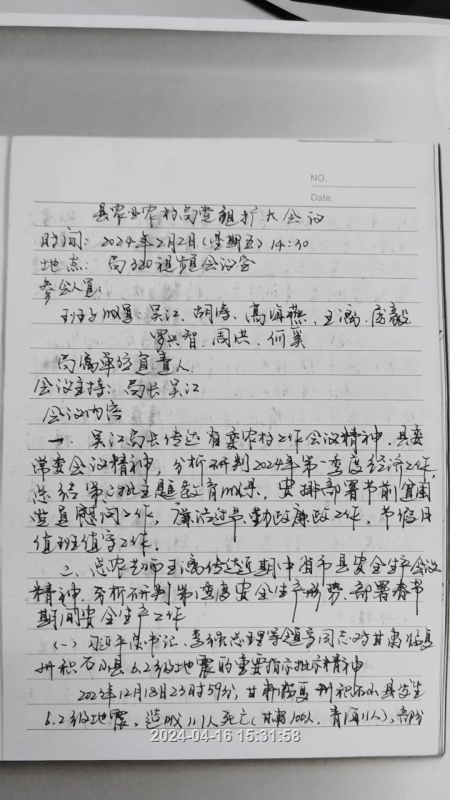 NO.
Date.
县农业农村局党组扩大会议
时间：2024年2月2日(星期五)14:30
地点：局320视频会议室
参会人员：
班子成员：吴江、胡涛、高 燕、王 、庞毅
罗兴智、周洪、何奚
局属单位负责人
会议主持：局长吴江
会议内容
一、吴江局长传达省委农村工作会议精神、县委
常委会议精神，分析研判2024年第一季度经济工作，
总结第二批主题教育成果，安排部署节前 困
党员慰问工作，廉洁过节、勤政廉政工作，节假日
值班值守工作。
二、总农艺师王 传达近期中省市县安全生产会议
精神，分析研判第一季度安全生产形势，部署春节
期间安全生产工作
(一)习近平总书记、李强总理等领导同志对甘肃临夏
州积石山县6.2级地震的重要指示批示精神
2023年12月18日23时59分，甘肃临夏州积石山县发生
6.2级地震，造成111人死亡(甘肃100人，青海11人)，部分
2024-04-16 15:31:58